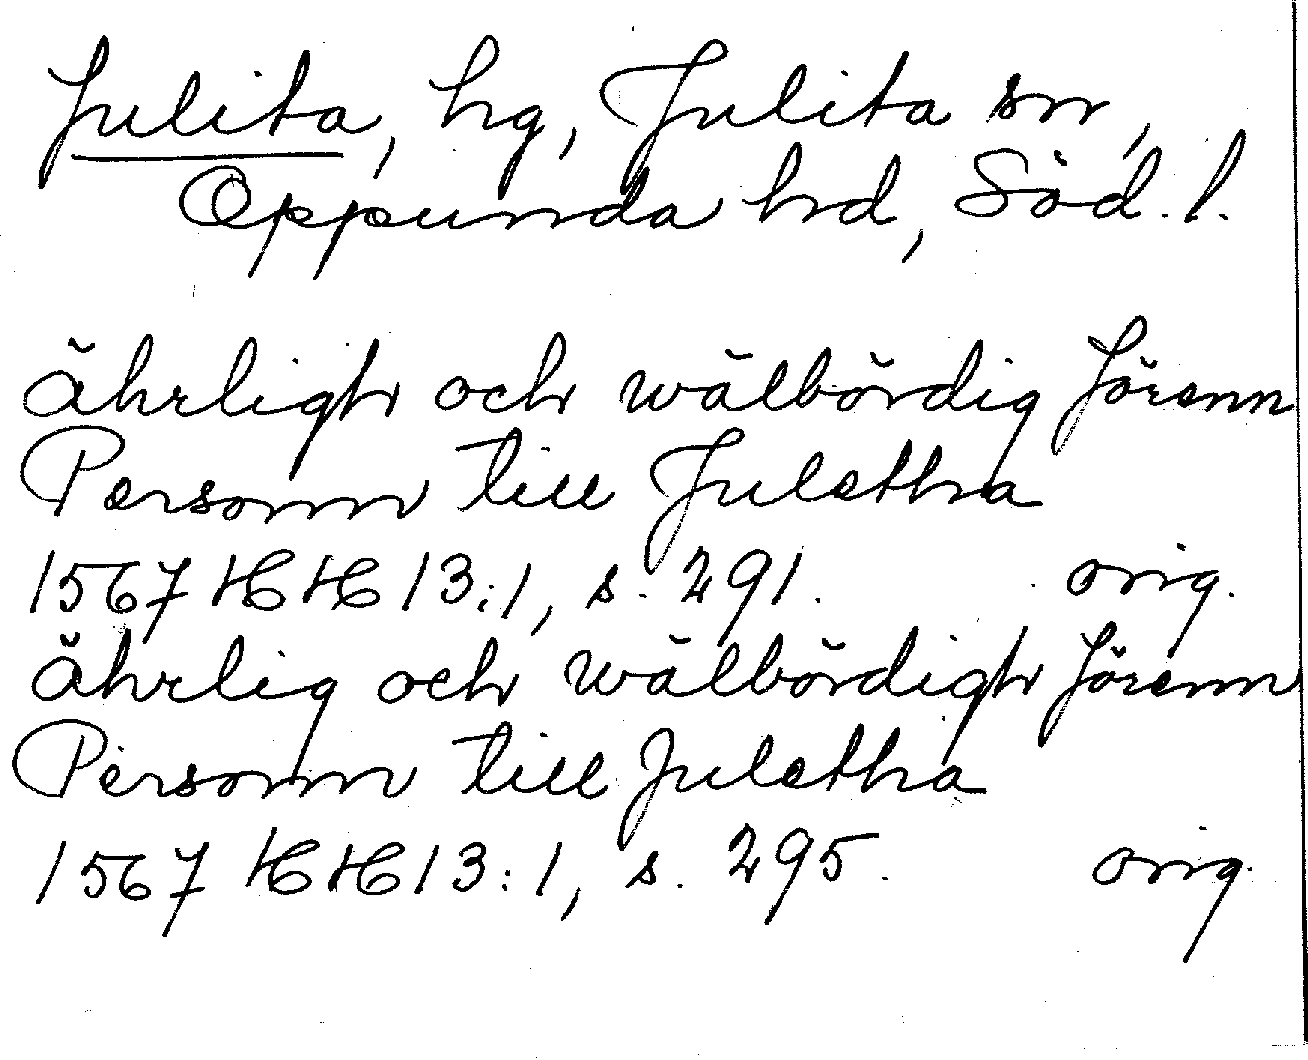 Julita, hg, Julita sn,
Oppunda hd, Söd. l.
ährligh och wälbördig Jörenn
Personn till Juletha
1567 HH 13:1, s. 291. orig.
ährlig och wälbördigh Jörenn
Personn till Juletha
1567 HH 13:1, s. 295. orig.